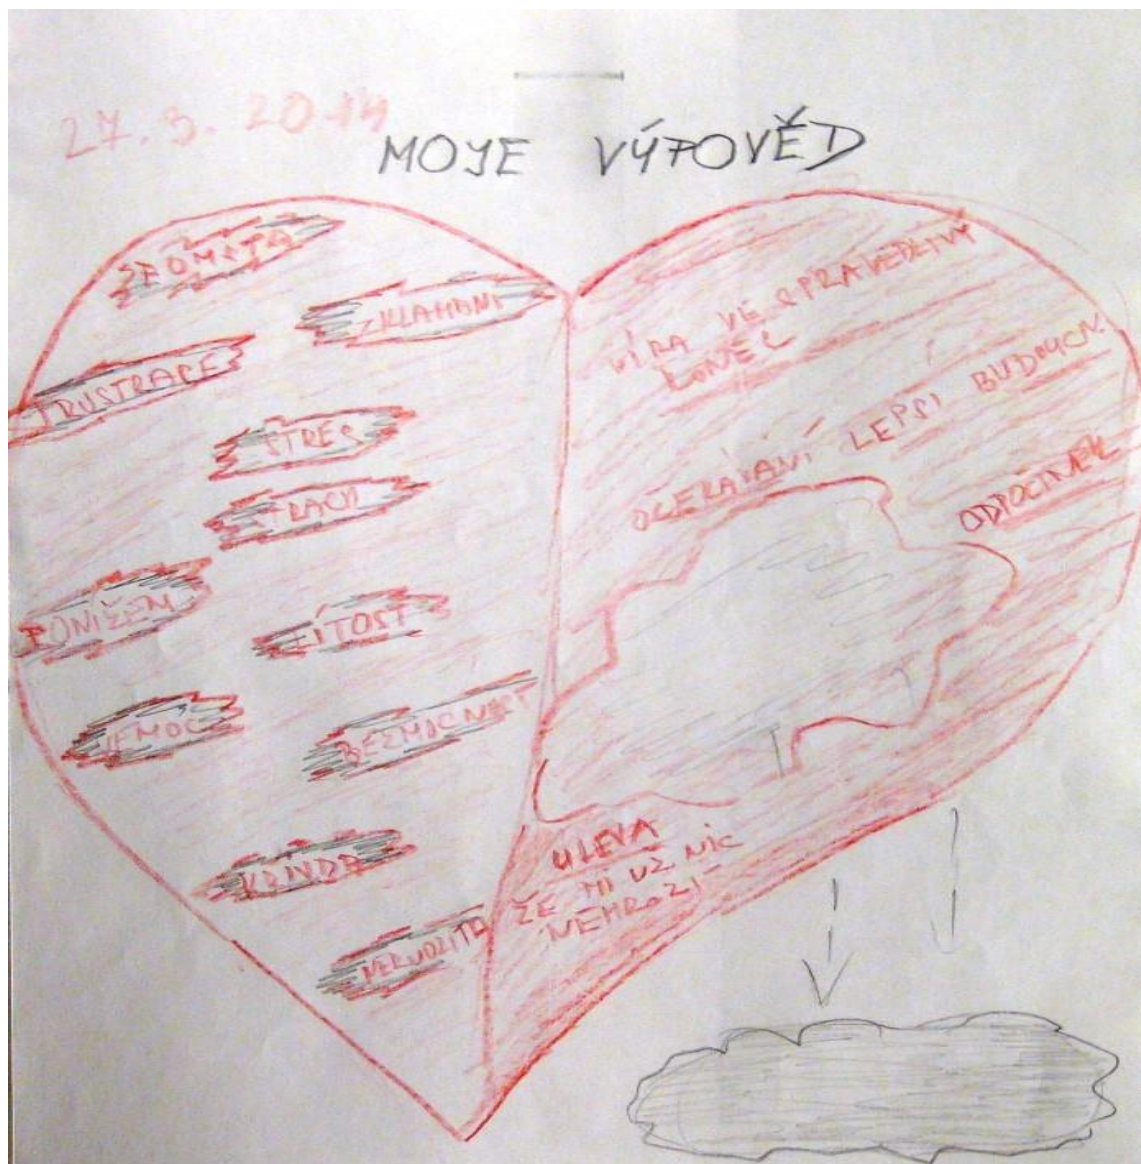 27. 3. 2014
MOJE VÝPOVĚD
ZKLAMÁNÍ
FRUSTRACE
STRES
STRACH
PONÍŽEN
LÍTOST
NEMOC
BEZMOCNOST
KŘIVDA
VÍRA VE SPRAVEDLIVÝ
KONEC
OČEKÁVÁNÍ LEPŠÍ BUDOUCN.
ODPOČINEK
ÚLEVA
ŽE MI UŽ NIC
NEHROZÍ